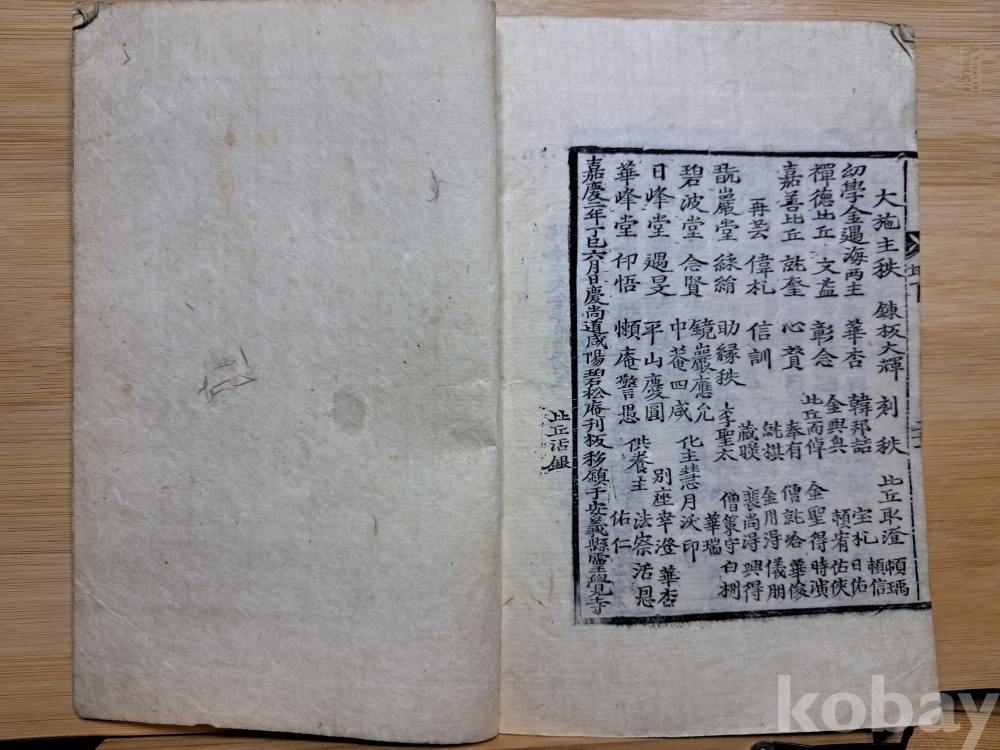 大施主秩 鍊板大輝 刻秩 比丘取澄 頓瑀 頓信
幼學金遇海兩主 華杏 韓邦喆 宝札 日佑
禪德比丘 文益 彰念 金興 頓宥 佑侠
嘉善比丘 䛢奎 心賛 比丘而偉 奉有 金聖得 時演 僧䛢 華俊
再芸 偉札 信訓 金用得 儀朋 裴尚得 興得
翫巖堂 助緣秩 李聖太 僧策守 白
碧波堂 念賢 鏡巖應允 化主慧月沃印 華瑞
日峰堂 遇旻 中菴四咸 平山慶圓 別座幸澄 華杏
華峰堂 仰悟 懶庵警愚 供養主 佑仁 法察 活恩
嘉慶二年丁巳六月日慶尚道咸陽碧松庵刊板移鎮于安義縣靈覺寺
比丘活
kobay